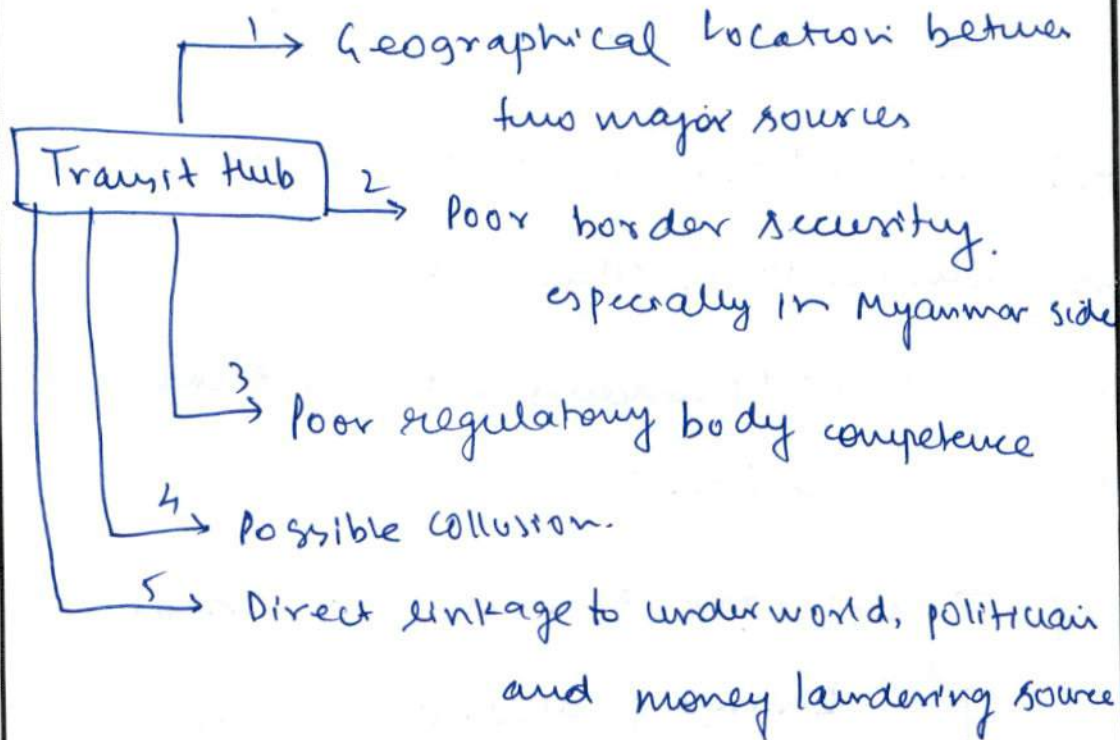 1 → Geographical Location between
two major sources
Transit Hub
2 → Poor border security.
especially in Myanmar side
3 → Poor regulatory body competence
4 → Possible collusion.
5 → Direct linkage to underworld, politician
and money laundering source